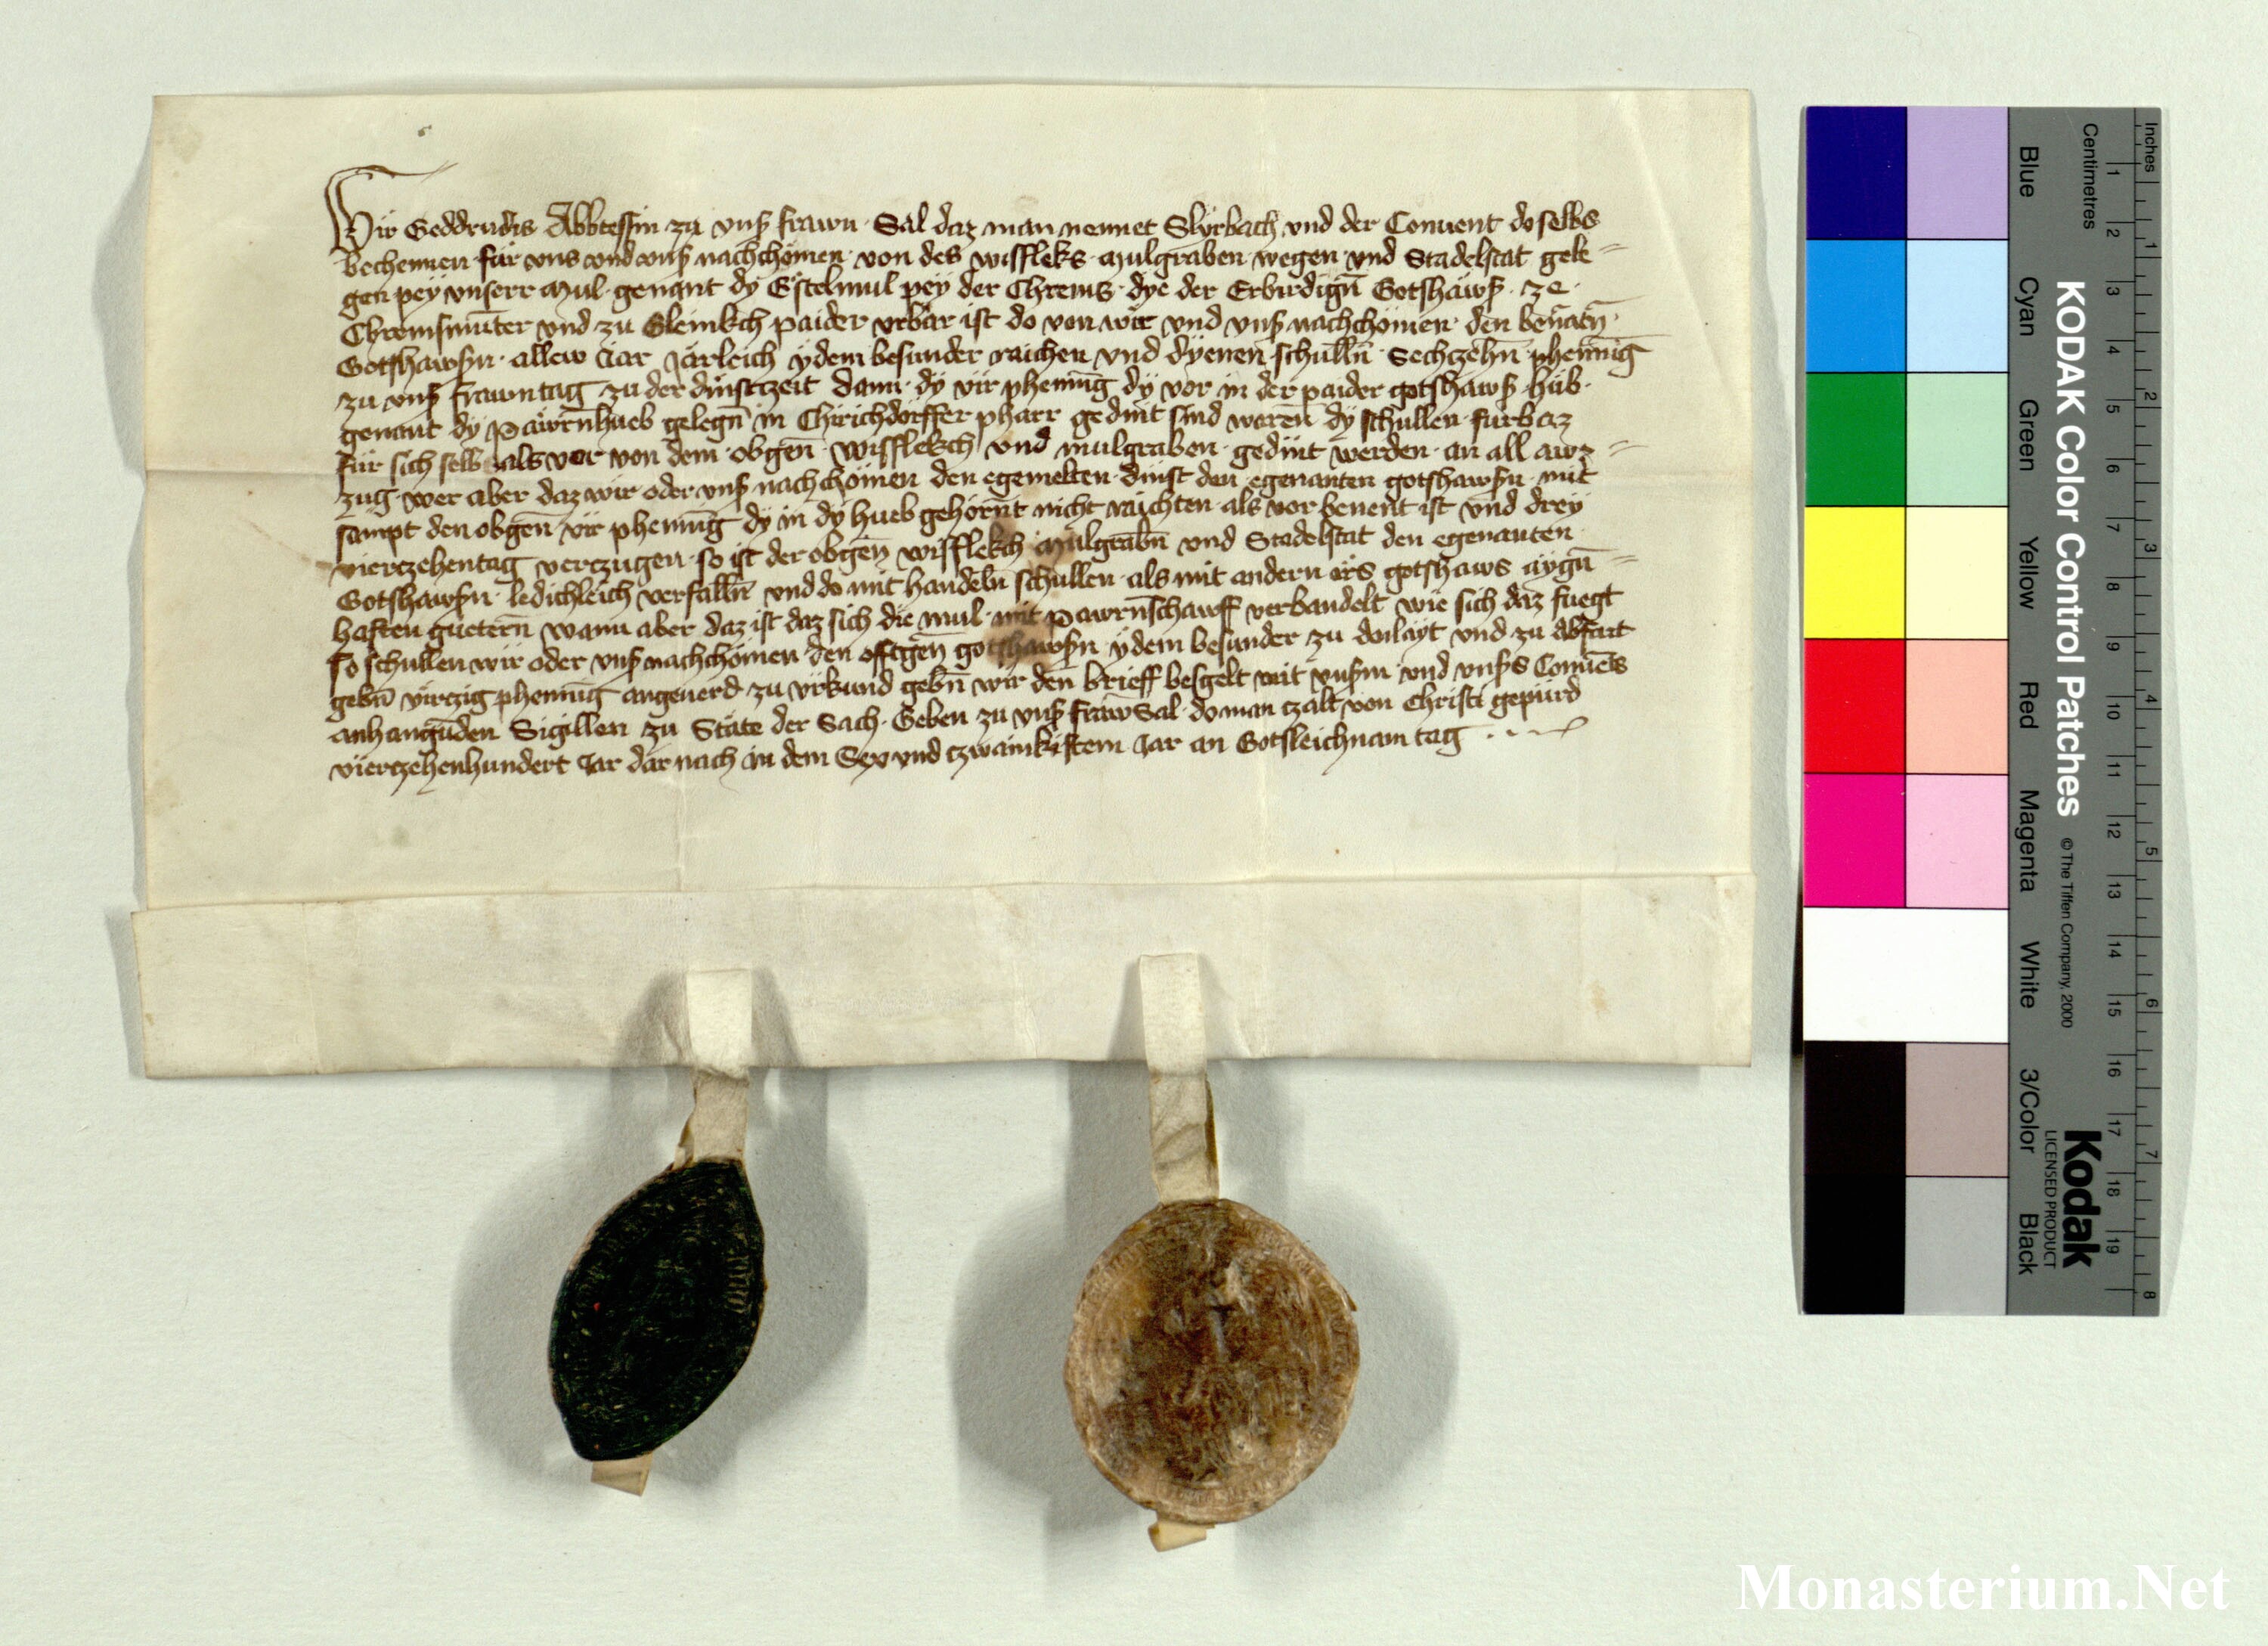 Wir Geddrudis Abbtessin zu vnß frawn Sal daz man nennet Slyrbach vnd der Conuent doselbs
bechennen für vns vnd vnß nachchömen von des wiffleks mulgraben wegen vnd Stadelstat gele=
gen pey vnserr mul genant dy Estelmul pey der Chrems dye der Erbirdign̄ Gotshawß ze
Chremsmūter vnd zu Gleinkch paider vrbar ist do von wir vnd vnß nachchömen den benātn̄
Gotshawßn allew Jar Järleich ydem besunder raichen vnd dyenen schulln̄ Sechzehn̄ phenn̄ig
zu vnß frawntag zu der dinstzeit dann dy vir phennīg dy vor in der paider gotshawß hüb
genant dy Pawrn̄hueb gelegn̄ in Chirichdorffer pharr gedint sind waren dy schullen fürbaz
für sich selb als vor von dem obgen̄ wifflekch vnd mulgraben gedint werden an all awz=
zug wer aber daz wir oder vnß nachchömen den egemelten dinst den egenanten gotshawßn mit
sampt den obgen̄ vir phennīg dy in dy hueb gehörnt nicht raichten als vor benent ist vnd drey
vierczehentag verczugen so ist der obgen̄ wifflekch mulgrabn̄ vnd Stadelstat den egenanten
Gotshawßn ledichleich verfalln̄ vnd do mit handeln schullen als mit andern irs gotshaws aygn̄=
haften guetern̄ wann aber daz ist daz sich die mul mit Pawrn̄schawff verbandelt wie sich daz fuegt
so schullen wir oder vnß nachchömen den offtgen̄ gotshawßn ydem besunder zu anlayt vnd zu abfart
gebn̄ virzig phennīg angeuerd zu vrkund gebn̄ wir den brieff besgelt mit vnßm vnd vnßs Conuēts
anhangūden Sigillen zu Stäte der Sach Geben zu vnß fraw Sal do man czalt von Christi gepürd
vierczehenhundert Jar dar nach in dem Sex vnd czwainkistem Jar an Gotsleichnam tag
Inches
Centimetres
1 2 3 4 5 6 7 8
1 2 3 4 5 6 7 8 9 10 11 12 13 14 15 16 17 18 19
KODAK Color Control Patches
© The Tiffen Company, 2000
Kodak
LICENSED PRODUCT
Blue
Cyan
Green
Yellow
Red
Magenta
White
3/Color
Black
Monasterium.Net